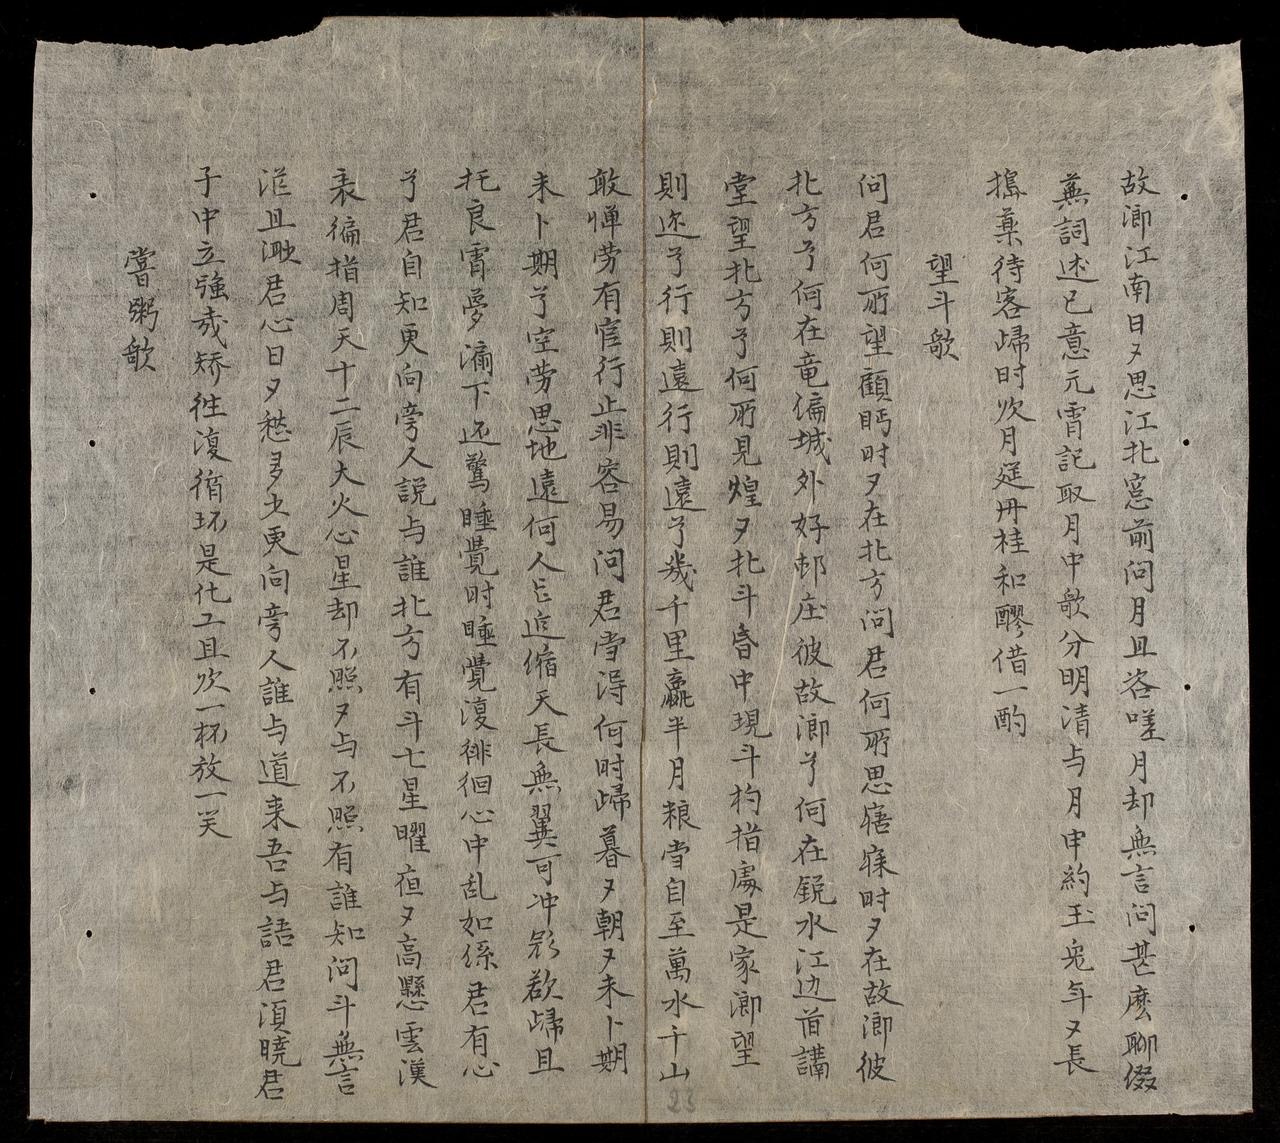 故鄉江南日々思江北窓前问月且咨嗟月却無言问甚麽聊假
蕪詞述已意元霄記取月中歌分明清与月申約玉兎年々長
搗薬待客歸时吹月筳丹桂和醪借一酌
望斗歌
问君何所望顧眄时々在北方问君何所思寤寐时々在故鄉彼
北方兮何在竜偏城外好邨庄彼故鄉兮何在鋭水江边首講
堂望北方兮何所見煌々北斗昏中現斗杓指處是家鄉望
則迩兮行則遠行則遠兮幾千里贏半月粮当自至萬水千山
敢惮劳有官行止非容易问君当淂何时歸暮々朝々未卜期
未卜期兮空劳思地遠何人長縮天長無翼可冲飛欲歸且
托良霄夢漏下还驚睡覺时睡覺復徘徊心中乱如係君有心
兮君自知更向旁人説与誰北方有斗七星曜夜々高懸雲漢
表徧指周天十二辰大火心星却不照々与不照有誰知问斗無言
茫且邈君心日夕愁多少更向旁人誰与道来吾与語君須暁君
子中立強哉矫往復循环是化工且吹一杯放一笑
嘗粥歌
23